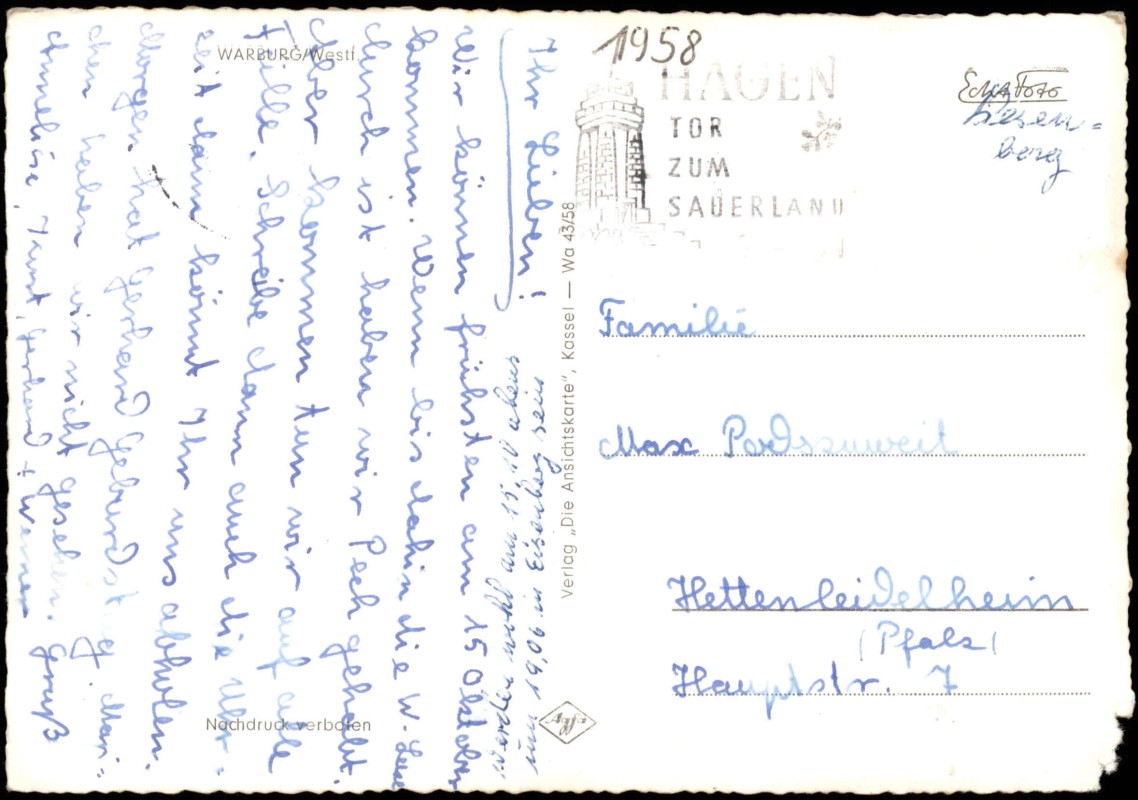 WARBURG/Westf.
Ihr Lieben!
Wir können frühsten am 15 Oktober
kommen. Wenn bis dahin die W-
durch ist haben wir Pech gehabt.
Aber kommen tun wir auf alle
Fälle. Schreibe dann auch die Uhr-
zeit dann könnt Ihr uns abholen.
Morgen hat Gerhard Geburdstag. Mari-
chen haben wir nicht gesehen. Gruß
Anneliese, Gerhard + Werner
Werden wohl am 15.10 abens
um 19,06 in Eisenberg sein
Nachdruck verboten
Verlag „Die Ansichtskarte", Kassel — Wa 43/58
1958
HAGEN
TOR
ZUM
SAUERLAND
Echt Foto
berg
Familie
Max Podszuweit
Hettenleidelheim
(Pfalz)
Hauptstr. 7